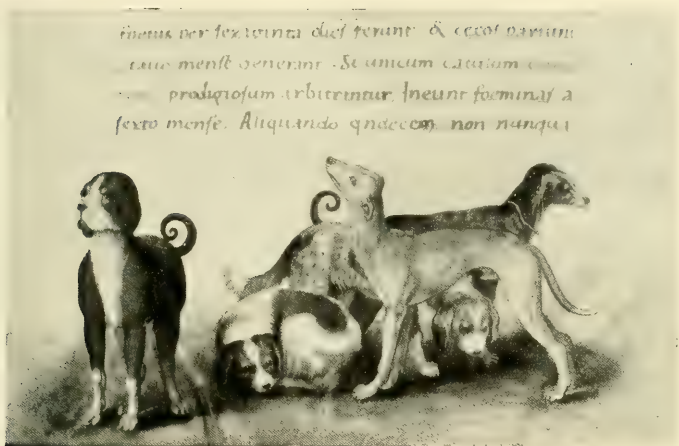 foetus per sexaginta dies ferunt & cecos pariunt
mense generant. Si unicum catulum
prodigiosum arbitrentur. Ineunt foeminas a
sexto mense. Aliquando qndecem non nunqua